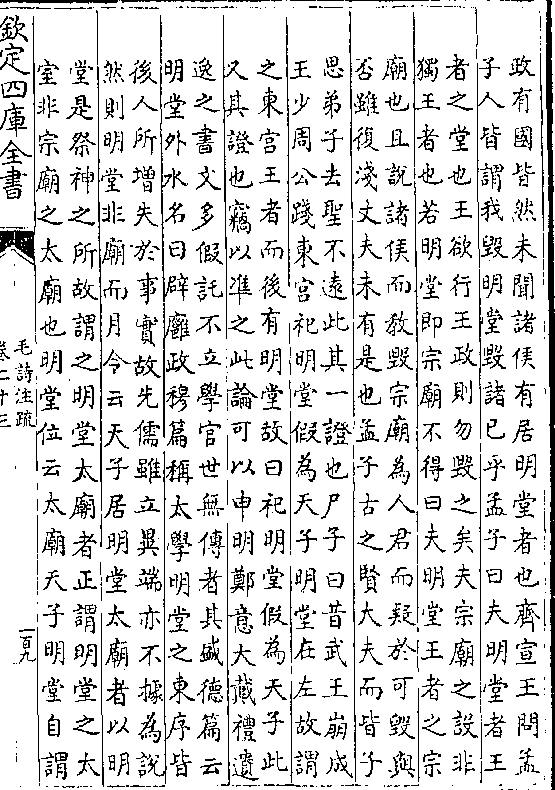 政有國皆然未聞諸侯有居明堂者也齊宣王問孟
子人皆謂我毀明堂毀諸已乎孟子曰夫明堂者王
者之堂也王欲行王政則勿毀之矣夫宗廟之設非
獨王者也若明堂即宗廟不得曰夫明堂王者之宗
廟也且說諸侯而教毀宗廟為人君而疑於可毀與
否雖復淺丈夫未有是也孟子古之賢大夫而皆子
思弟子去聖不遠此其一證也尸子曰昔武王崩成
王少周公踐東宫祀明堂假為天子明堂在左故謂
之東宫王者而後有明堂故曰祀明堂假為天子此
又其證也竊以准之此論可以申明鄭意大戴禮遺
逸之書文多假託不立學官世無傳者其盛德篇云
明堂外水名曰辟廱政穆篇稱太學明堂之東序皆
後人所增失於事實故先儒雖立異端亦不據為說
然則明堂非廟而月令云天子居明堂太廟者以明
堂是祭神之所故謂之明堂太廟者正謂明堂之太
室非宗廟之太廟也明堂位云太廟天子明堂自謂
欽定四庫全書
毛詩注疏
卷二十三
一百九